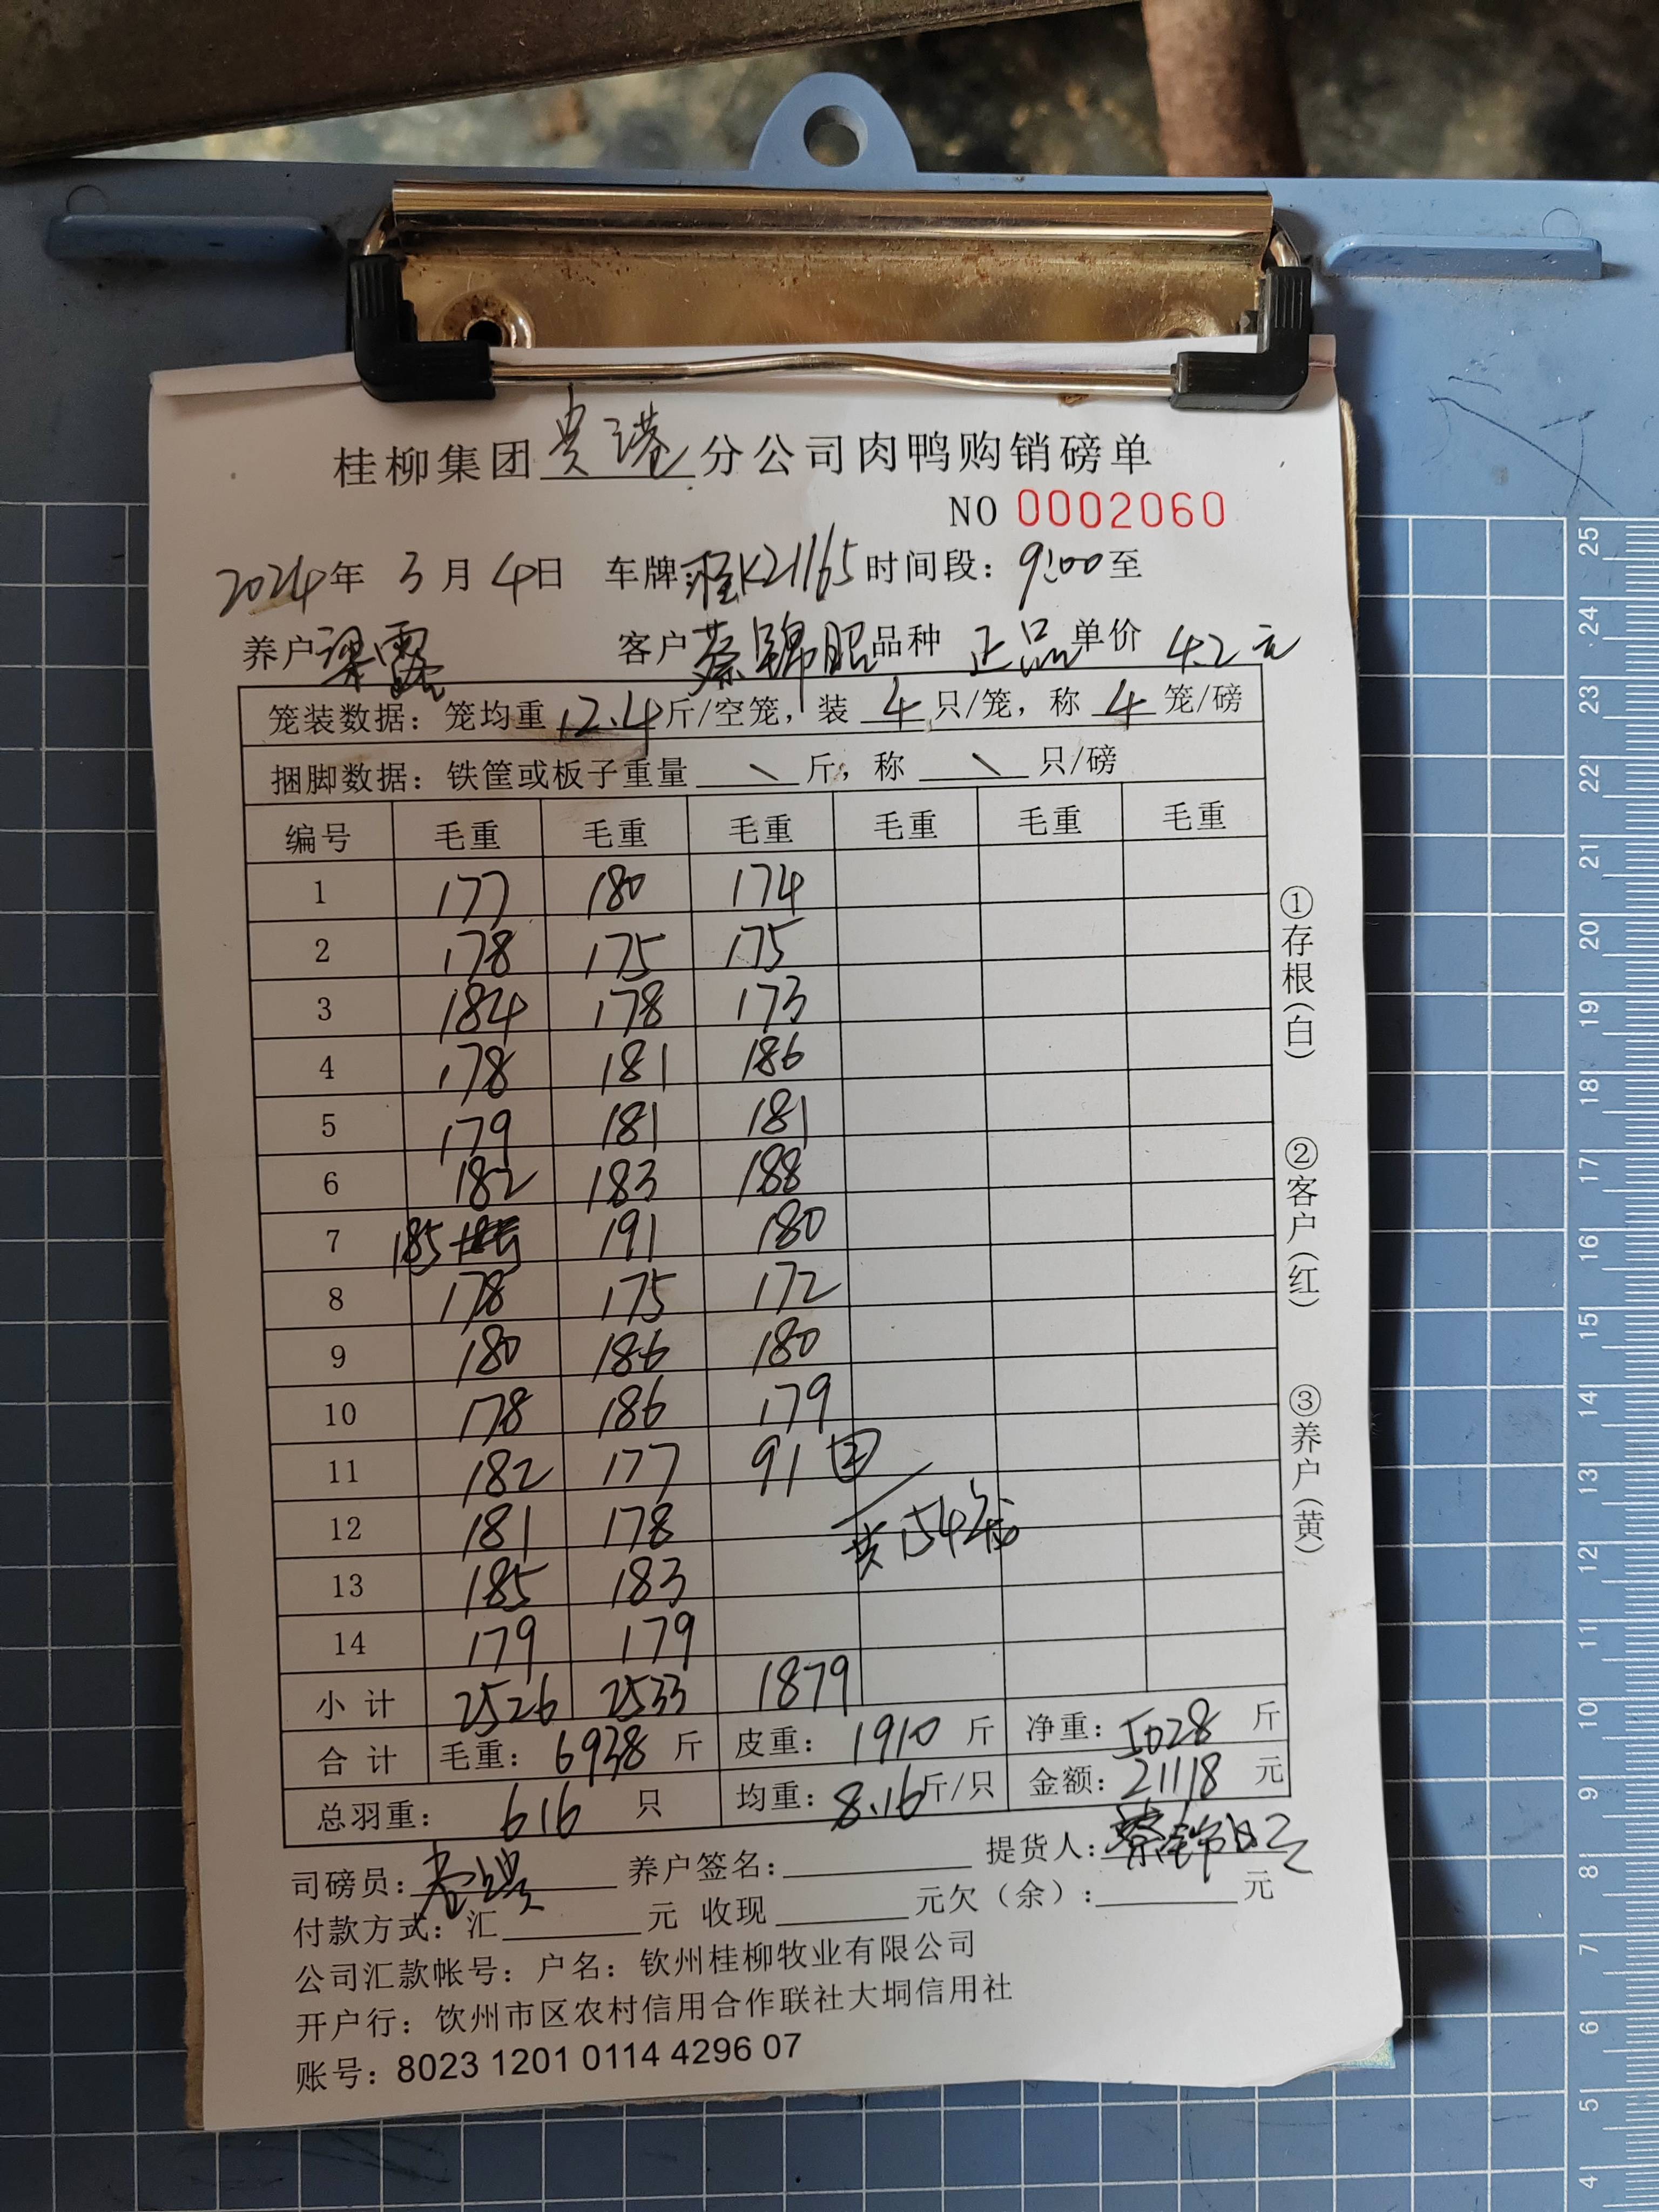 桂柳集团贵港分公司肉鸭购销磅单
NO 0002060
2024年 3月 4日 车牌:桂K21165 时间段：9:00至
养户 梁露 客户 蔡锦昭 品种 正品 单价 4.2元
笼装数据：笼均重 12.4 斤/空笼，装 4 只/笼，称 4 笼/磅
捆脚数据：铁筐或板子重量 \ 斤，称 \ 只/磅
编号 毛重 毛重 毛重 毛重 毛重 毛重
1 177 180 174
2 178 175 175
3 184 178 173
4 178 181 186
5 179 181 181
6 182 183 188
7 185 191 180
8 178 175 172
9 180 186 180
10 178 186 179
11 182 177 91
12 181 178 共154
13 185 183
14 179 179
小计 2526 2533 1879
合计 毛重：6938 斤 皮重：1910 斤 净重：5028 斤
总羽重：616 只 均重：8.16 斤/只 金额：21118 元
司磅员： 养户签名： 提货人：蔡锦昭
付款方式：汇 元 收现 元欠（余）： 元
公司汇款帐号：户名：钦州桂柳牧业有限公司
开户行：钦州市区农村信用合作联社大垌信用社
账号：8023 1201 0114 4296 07
①存根（白）
②客户（红）
③养户（黄）
25
24
23
22
21
20
19
18
17
16
15
14
13
12
11
10
9
8
7
6
5
4